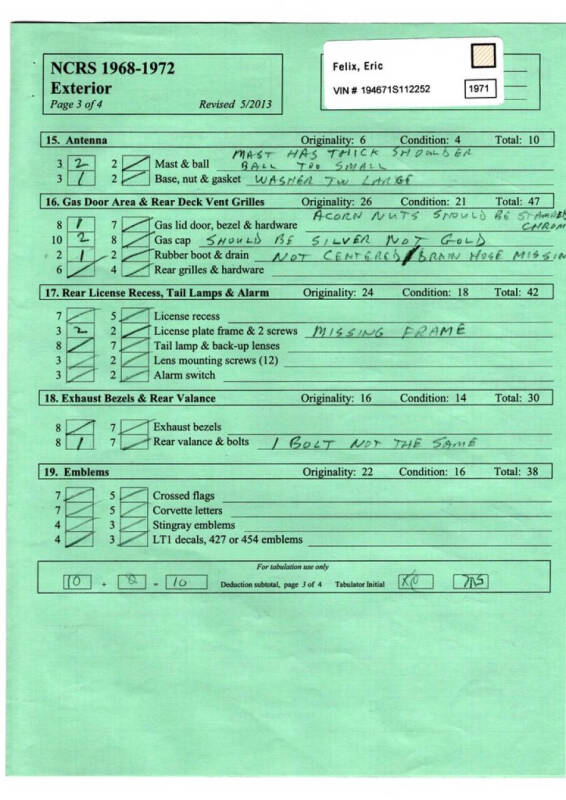 NCRS 1968-1972
Exterior
Page 3 of 4 Revised 5/2013
Felix, Eric
VIN # 194671S112252 1971
15. Antenna Originality: 6 Condition: 4 Total: 10
MAST HAS THICK SHOULDER
3 2 2 Mast & ball BALL TOO SMALL
3 1 2 Base, nut & gasket WASHER TOO LARGE
16. Gas Door Area & Rear Deck Vent Grilles Originality: 26 Condition: 21 Total: 47
ACORN NUTS SHOULD BE STAMPED
CHROM
8 1 7 Gas lid door, bezel & hardware
10 2 8 Gas cap SHOULD BE SILVER NOT GOLD
2 1 2 Rubber boot & drain NOT CENTERED / DRAIN HOSE MISSIN
6 4 Rear grilles & hardware
17. Rear License Recess, Tail Lamps & Alarm Originality: 24 Condition: 18 Total: 42
7 5 License recess
3 2 2 License plate frame & 2 screws MISSING FRAME
8 7 Tail lamp & back-up lenses
3 2 Lens mounting screws (12)
3 2 Alarm switch
18. Exhaust Bezels & Rear Valance Originality: 16 Condition: 14 Total: 30
8 7 Exhaust bezels
8 1 7 Rear valance & bolts 1 BOLT NOT THE SAME
19. Emblems Originality: 22 Condition: 16 Total: 38
7 5 Crossed flags
7 5 Corvette letters
4 3 Stingray emblems
4 3 LT1 decals, 427 or 454 emblems
For tabulation use only
10 + 0 = 10 Deduction subtotal, page 3 of 4 Tabulator Initial